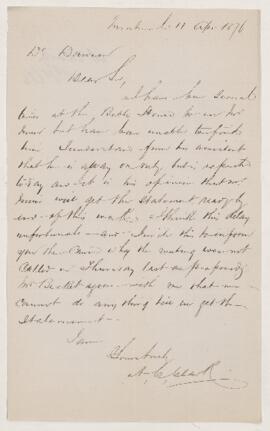 11 Apr 1876
Dr
Dear Sir,
I have been several
times at the Bath House to see Mr
but have been unable to find
him I understand from his assistant
that he is away on duty but is expected
today and it is his opinion that Mr
will get the Statement ready by
end of this week. I think this delay
unfortunate and I write this to inform
you the cause why the meeting was not
called on Thursday last as proposed
Mr agrees with me that we
cannot do any thing till we get the
Statement
I am
Yours truly